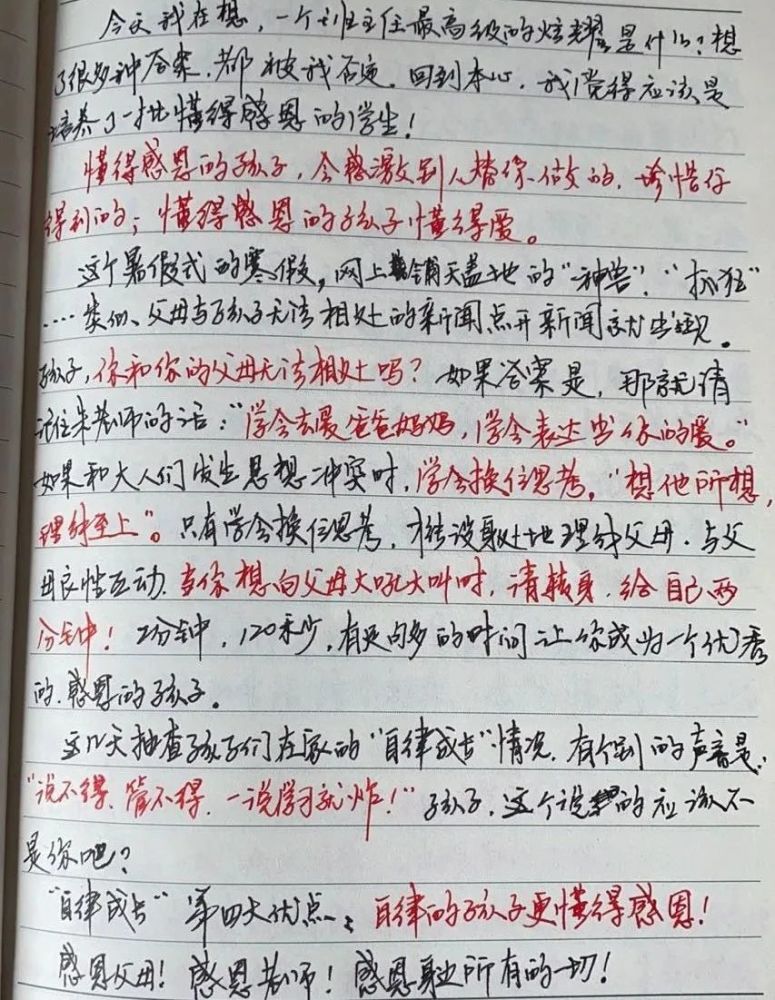 今天我在想，一个班主任最高级的炫耀是什么？想
了很多种答案，都被我否定。回到本心，我觉得应该是
培养了一批懂得感恩的学生！
懂得感恩的孩子，会感激别人替你做的，珍惜你
得到的；懂得感恩的孩子懂得爱。
这个暑假式的寒假，网上铺天盖地的“神兽”“抓狂”
……类似、父母与孩子无法相处的新闻点开新闻就出现。
孩子，你和你的父母无法相处吗？如果答案是，那就请
记住朱老师的话：“学会去爱爸爸妈妈，学会表达出你的爱。”
如果和大人们发生思想冲突时，学会换位思考，“想他所想，
理解至上”。只有学会换位思考，才能设身处地理解父母，与父
母良性互动。当你想向父母大吼大叫时，请转身，给自己两
分钟！2分钟，120秒，有足够多的时间让你成为一个优秀
的、感恩的孩子。
这几天抽查孩子们在家的“自律成长”情况，有个别的声音是：
“说不得、管不得、一说学习就炸！”孩子，这个说的应该不
是你吧？
“自律成长”第四大优点：自律的孩子更懂得感恩！
感恩父母！感恩老师！感恩身边所有的一切！